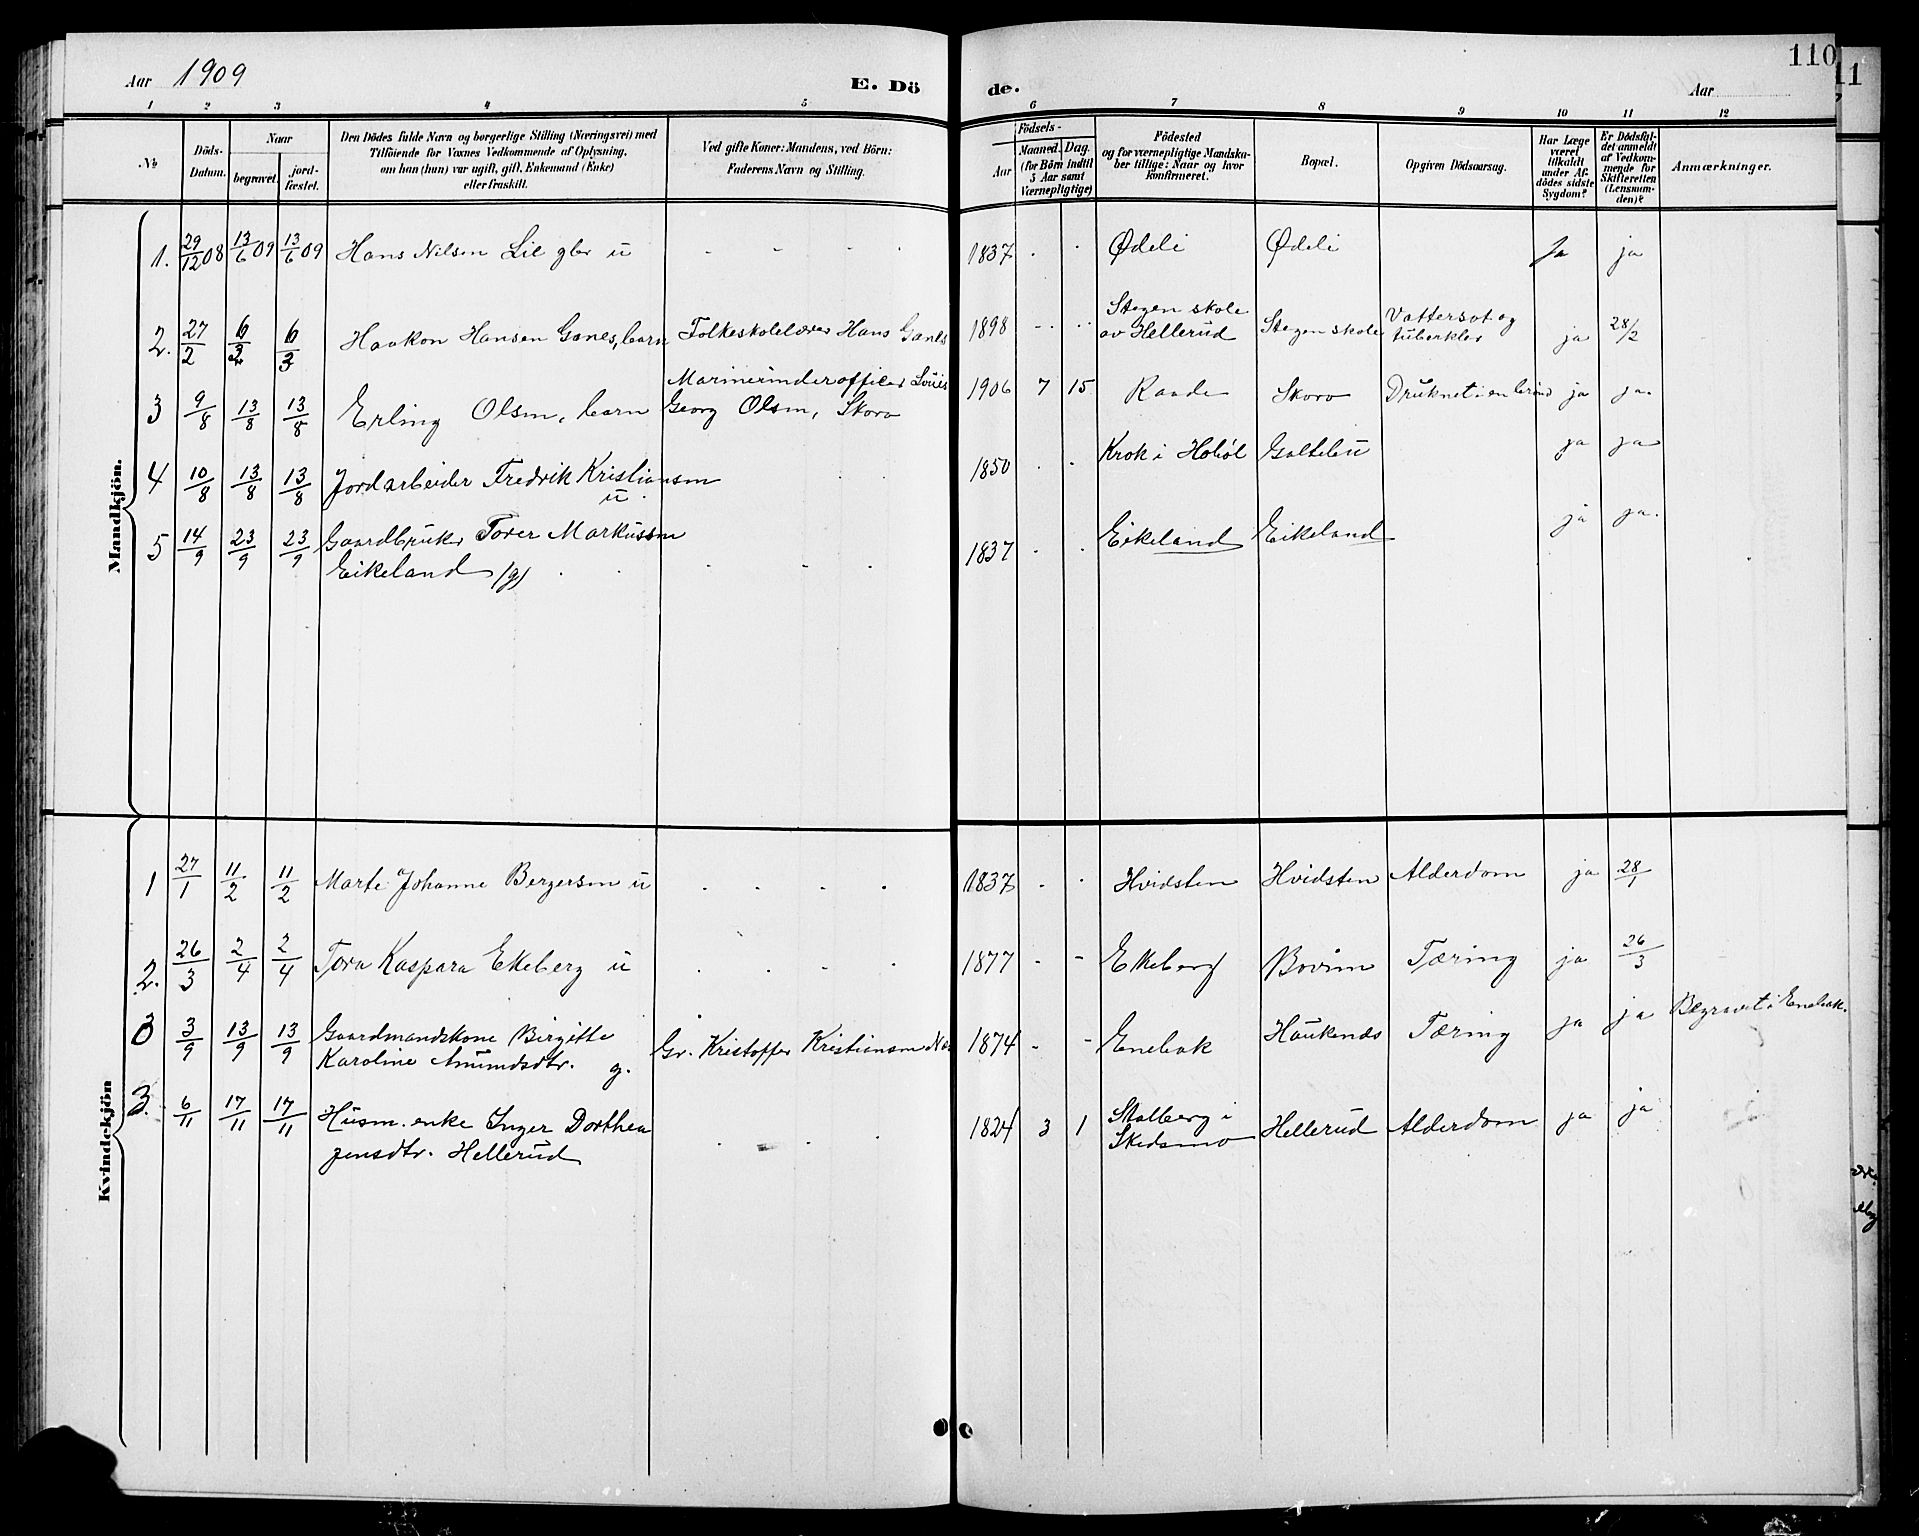 110
11
Aar 1909
E. Dö
de.
Aar
1 2 3 4 5 6 7 8 9 10 11 12
No
Döds-Datum.
Naar
begravet.
jord-fæstet.
Den Dödes fulde Navn og borgerlige Stilling (Næringsvei) med
Tilföiende for Voxnes Vedkommende af Oplysning,
om han (hun) var ugift, gift, Enkemand (Enke)
eller fraskilt.
Ved gifte Koner: Mandens, ved Börn:
Faderens Navn og Stilling.
Födsels-
Aar
Maaned. Dag.
(for Börn indtil
5 Aar samt
Værnepligtige)
Födested
og for værnepligtige Mandska-
ber tillige: Naar og hvor
konfirmeret.
Bopæl.
Opgiven Dödsaarsag.
Har Læge
været
tilkaldt
under Af-
dödes sidste
Sygdom?
Er Dödsfal-
det anmeldt
af Vedkom-
mende for
Skifteretten
(Lensman-
den)?
Anmærkninger.
Mandkjön.
1. 29/12 08 13/6 09 13/6 09 Hans Nilsen Lie gbr u 1837 Ødeli Ødeli Ja ja
2. 27/2 6/3 6/3 Haakon Hansen Ganes, barn Folkeskolelærer Hans Ganes 1898 Stegen skole
av Hellerud Stegen skole Vattersot og
tuberklos ja 28/2
3 9/8 13/8 13/8 Erling Olsen, barn Marineunderofficer Louis
Georg Olsen, Skoro 1906 7 15 Raade Skoro Druknet i en brönd ja ja.
4 10/8 13/8 13/8 Jordarbeider Fredrik Kristiansen
u. 1850 Krok i Hobøl Galtebu ja ja
5 14/9 23/9 23/9 Gaardbruker Torer Markussen
Eikeland (g) 1837 Eikeland Eikeland ja ja.
Kvindekjön
1 27/1 11/2 11/2 Marte Johanne Bergersen u 1837 Hvidsten Hvidsten Alderdom ja 28/1
2. 26/3 2/4 2/4 Tora Kaspara Ekeberg u 1877 Ekeberg Bovim Tæring ja 26/3
3 3/9 13/9 13/9 Gaardmandskone Birgitte
Karoline Amundsdtr. g. Gr. Kristoffer Kristiansen 1874 Enebak Haukenes Tæring ja ja Begravet i Enebak.
3. 6/11 17/11 17/11 Husm. enke Inger Dorthea
Jensdtr. Hellerud 1824 3 1 Stalberg i
Skedsmo Hellerud Alderdom ja ja